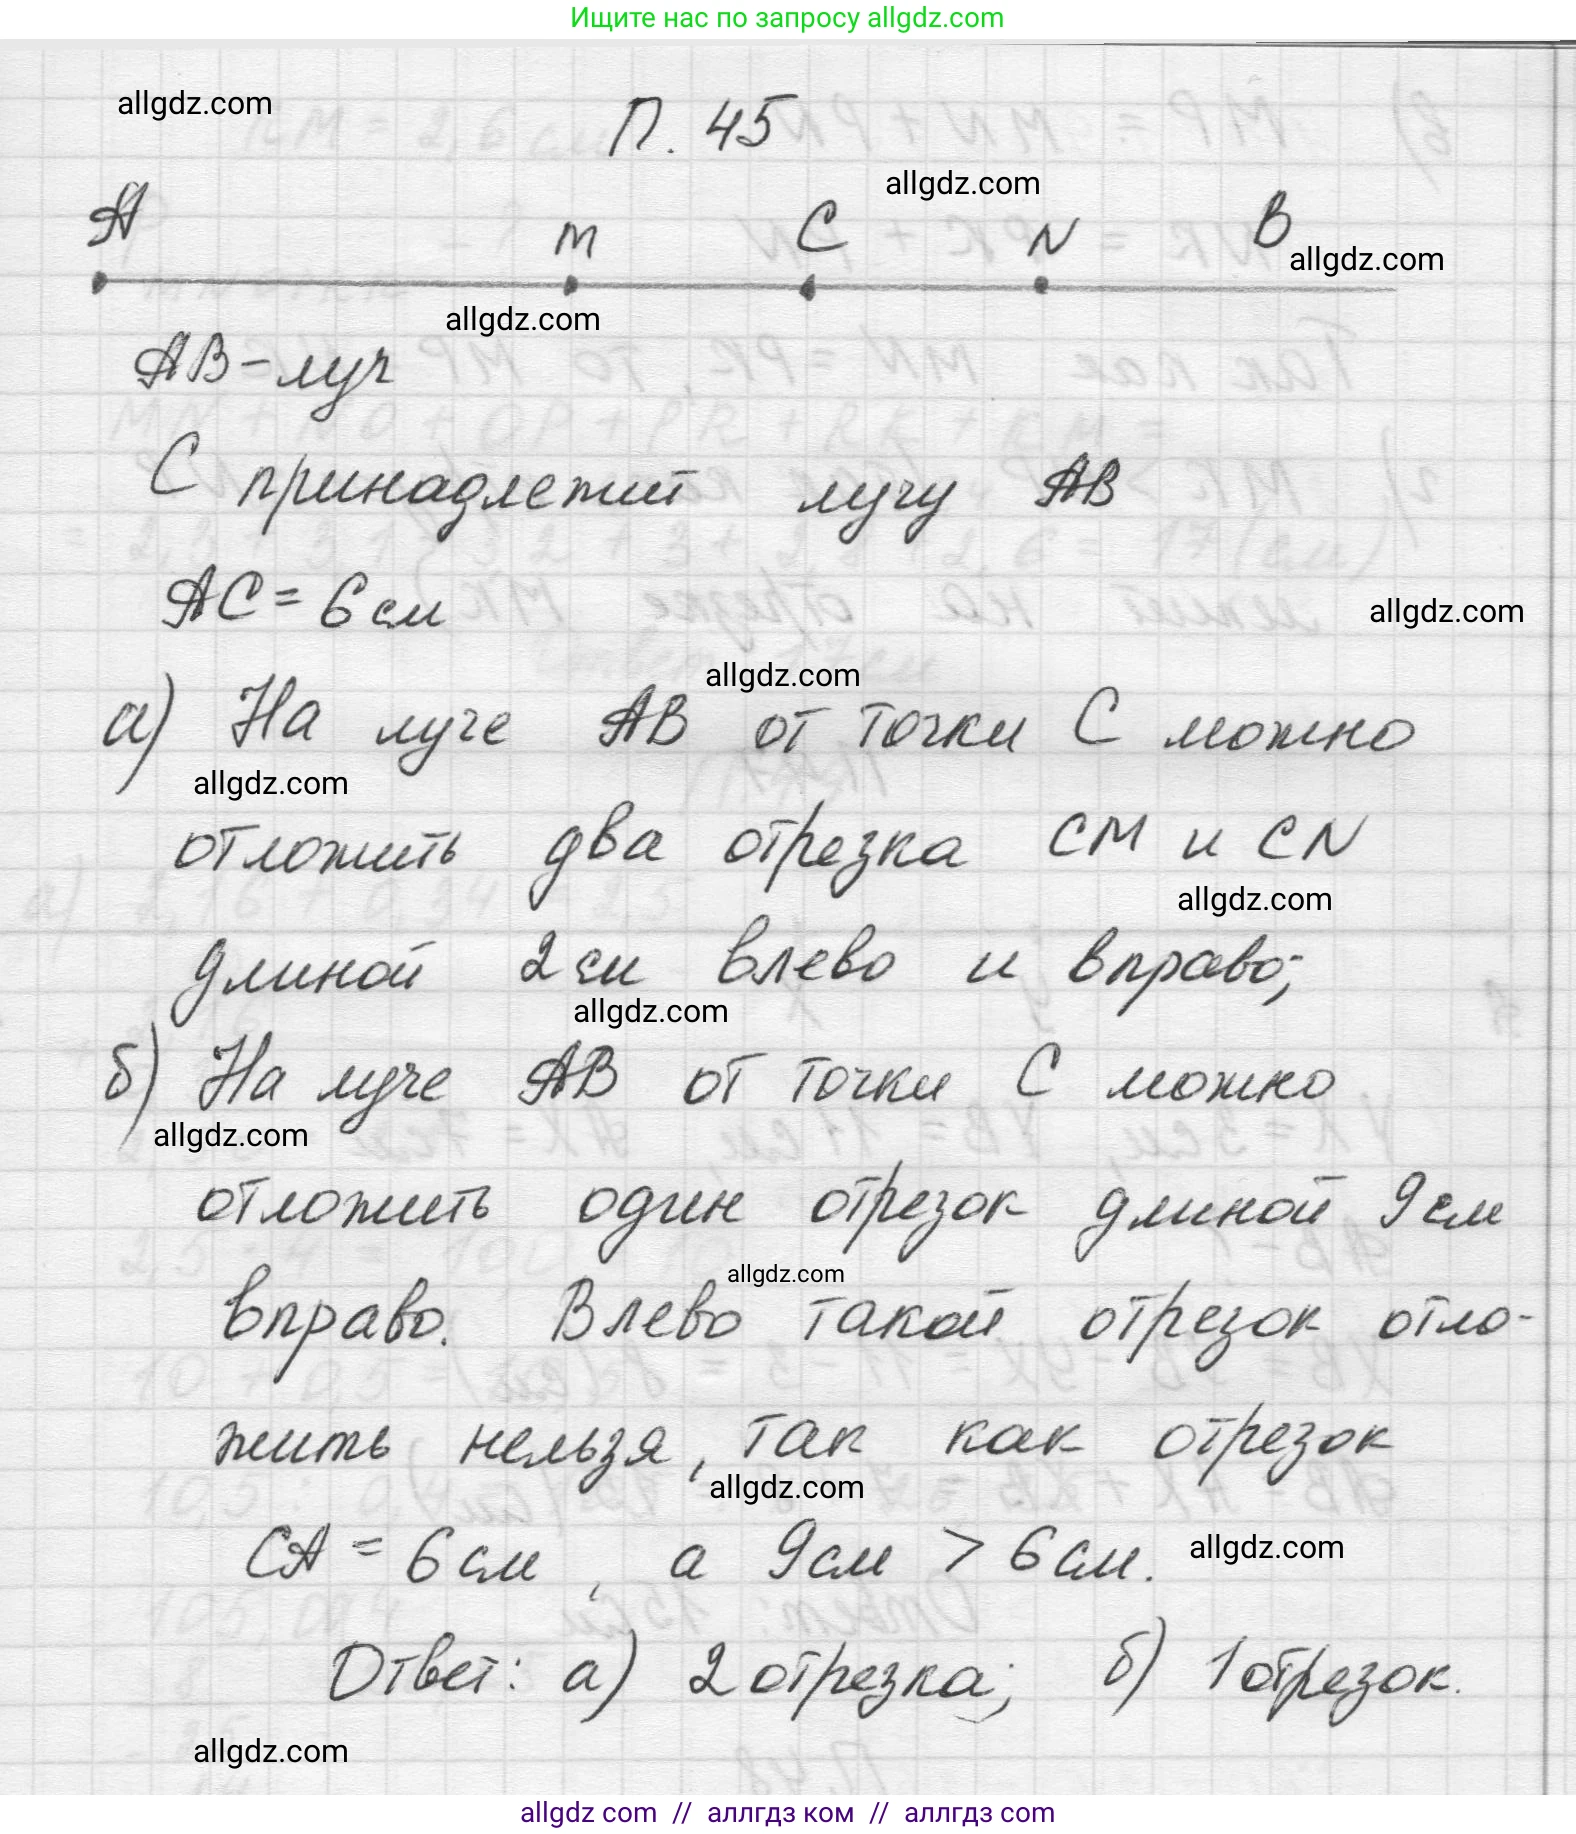 Ищите нас по запросу allgdz.com
allgdz.com
П. 45
allgdz.com
A M C N B
allgdz.com
allgdz.com
AB – луч
C принадлежит лучу AB
AC = 6 см
allgdz.com
allgdz.com
а) На луче AB от точки C можно
allgdz.com
отложить два отрезка CM и CN
allgdz.com
длиной 2 см влево и вправо;
allgdz.com
б) На луче AB от точки C можно
allgdz.com
отложить один отрезок длиной 9 см
allgdz.com
вправо. Влево такой отрезок отло-
жить нельзя, так как отрезок
allgdz.com
CA = 6 см, а 9 см > 6 см.
allgdz.com
Ответ: а) 2 отрезка; б) 1 отрезок.
allgdz.com
allgdz com // аллгдз ком // аллгдз com